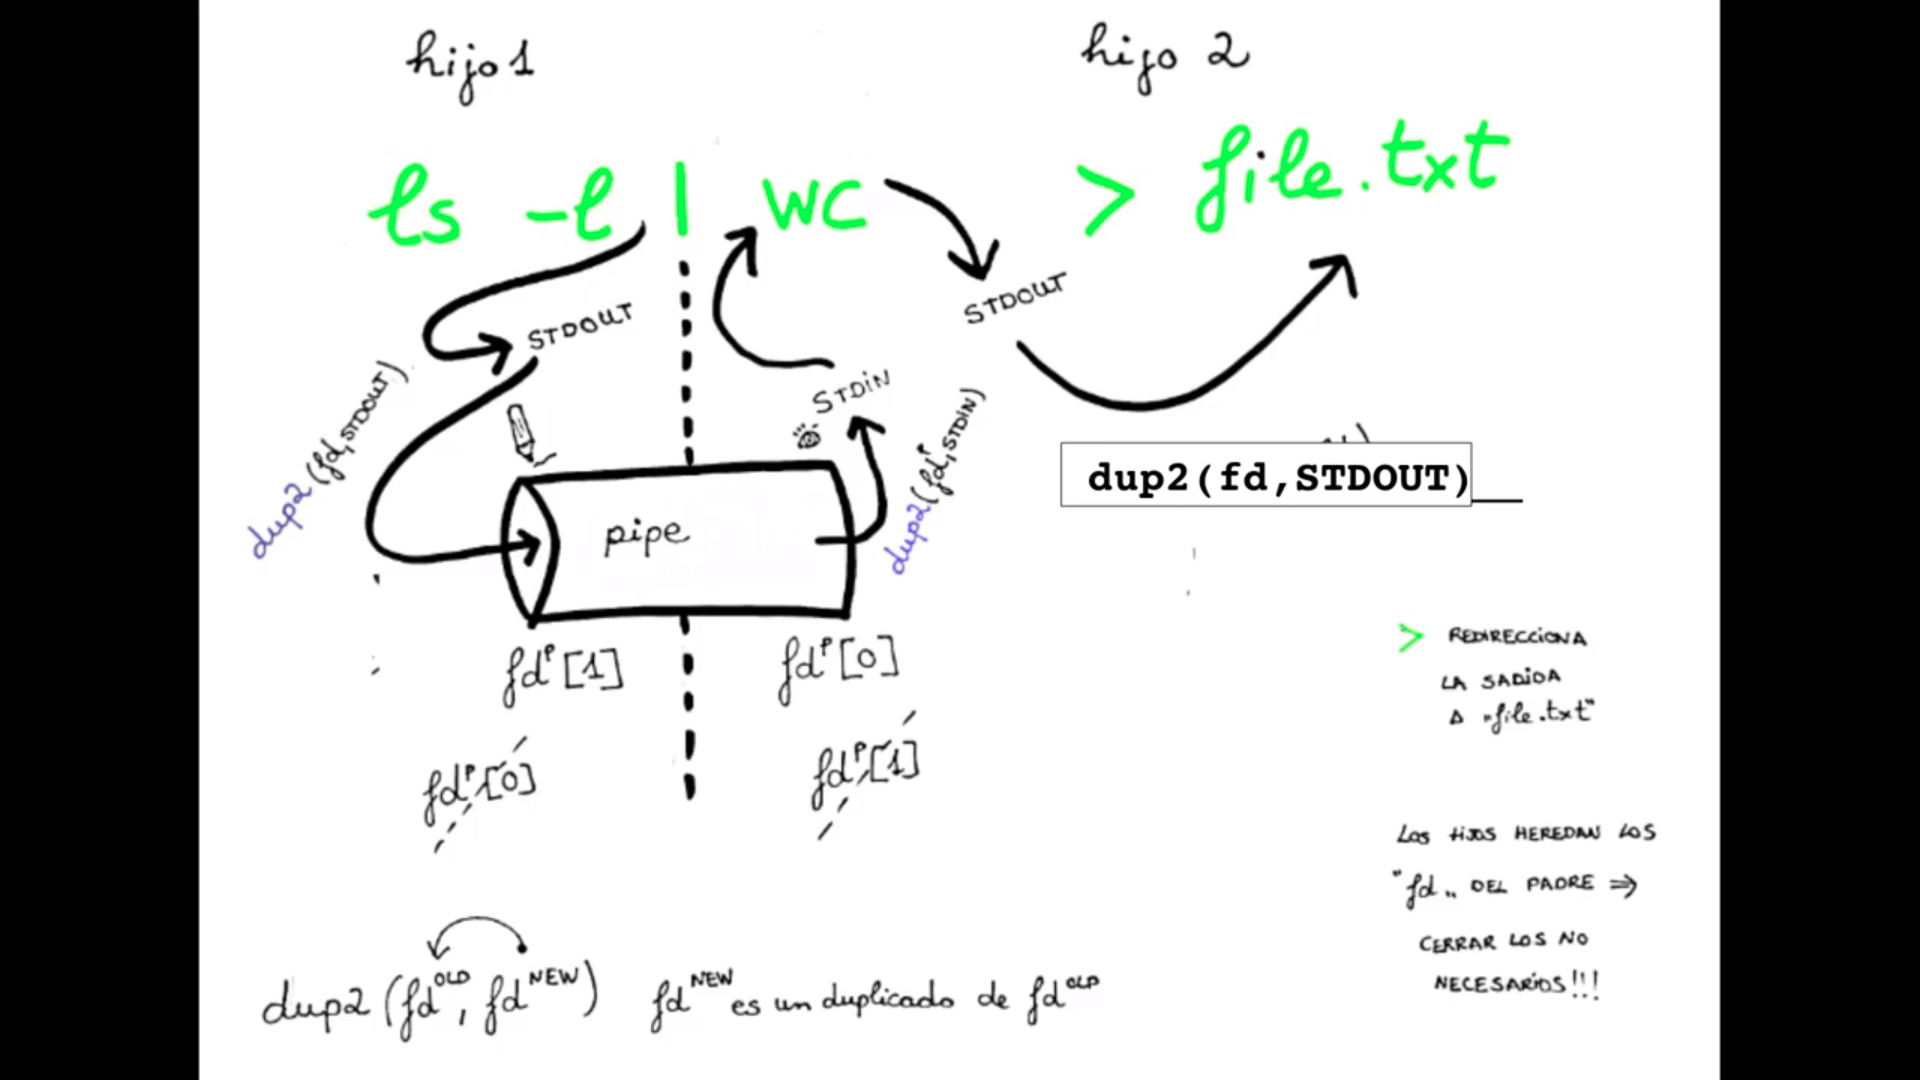 hijo 1
hijo 2
ls -l | wc > file.txt
STDOUT
STDOUT
STDIN
dup2(fd,STDOUT)
dup2(fdᴾ,STDIN)
dup2(fd,STDOUT)
pipe
fdᴾ[1]
fdᴾ[0]
fdᴾ[0]
fdᴾ[1]
> REDIRECCIONA
LA SADIDA
A "file.txt"
LOS HIJOS HEREDAN LOS
"fd" DEL PADRE ⇒
CERRAR LOS NO
NECESARIOS!!!
dup2 (fd OLD, fd NEW) fd NEW es un duplicado de fd OLD